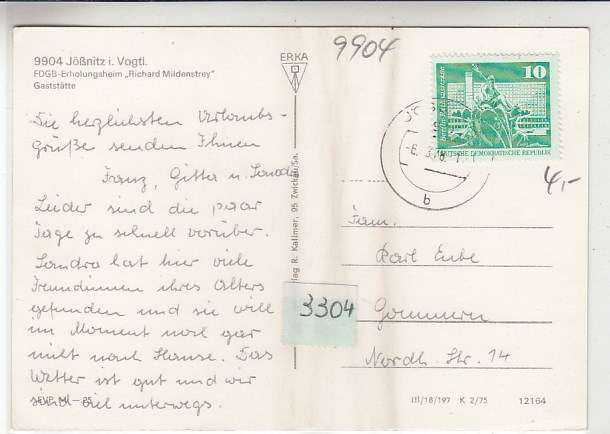 9904 Jößnitz i. Vogtl.
FDGB-Erholungsheim „Richard Mildenstrey"
Gaststätte
ERKA
9904
10
Berlin, Rathausstraße
DEUTSCHE DEMOKRATISCHE REPUBLIK
-6. 3.78.
b
4,-
Die herzlichsten Urlaubs-
grüße senden Ihnen
Franz, Gitta u. Sandra
Leider sind die paar
Tage zu schnell vorüber.
Sandra hat hier viele
Freundinnen ihres Alters
gefunden und sie will
im Moment noch gar
nicht nach Hause. Das
Wetter ist gut und wir
sind viel unterwegs.
R. Kallmer, 95 Zwickau/Sa.
3304
Fam.
Karl Eube
Gommern
Nordh. Str. 14
EVP M —,25
III/18/197 K 2/75
12164